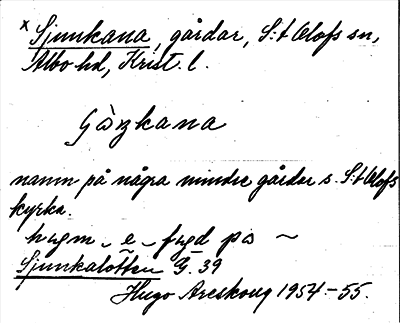 x Sjunkana, gårdar, S:t Olofs sn,
Albo hd, Krist. l.
namn på några mindre gårdar s. S:t Olofs
kyrka.
Sjunkalotten G. 39
Hugo Areskoug 1954-55.